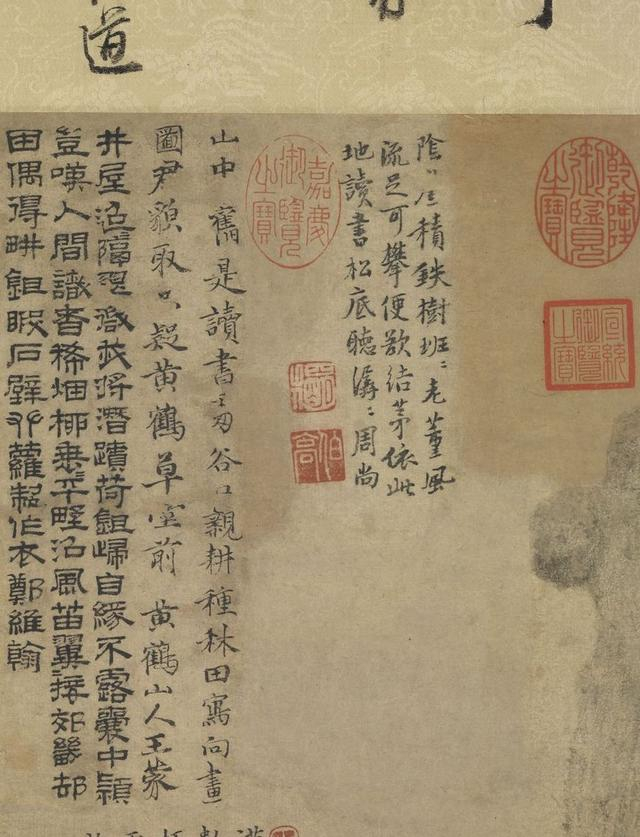 道
乾隆御覽之寶
宣統御覽之寶
陰〻厓積鉄樹班〻老董風
流足可攀便欲結茅依此
地讀書松底聽潺〻周尚
嘉慶御覽之寶
山中舊是讀書 谷口親耕種秫田寫向畫
圖君貌取只疑黃鶴草堂前 黃鶴山人王蒙
井屋迢 我將潛蹟荷鉏歸自緣不露囊中穎
豈嘆人間識者稀烟 平野沿風苗翼接郊畿却
田偶得畊鉏暇石壁 蘿製作衣鄭維翰